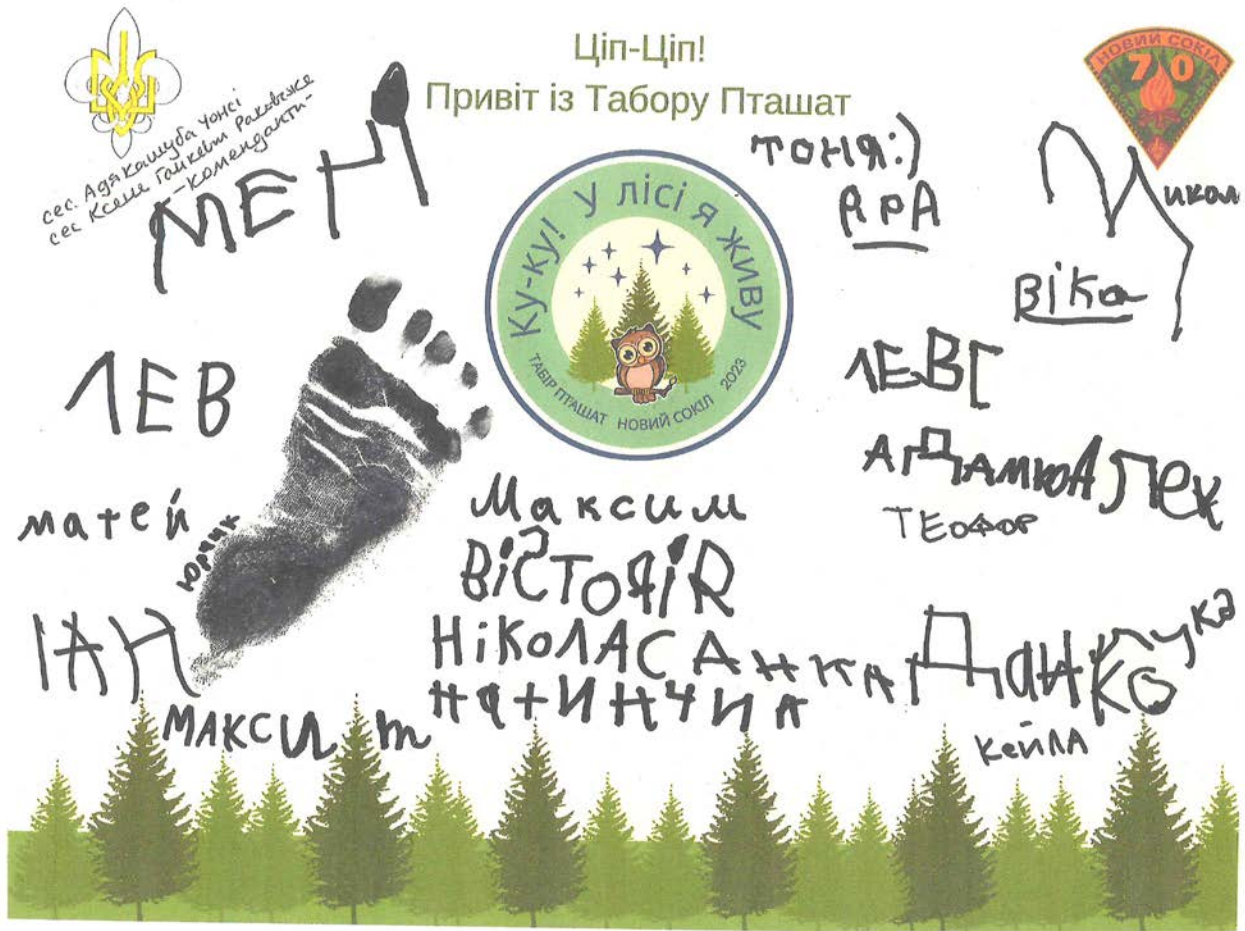 Ціп-Ціп!
Привіт із Табору Пташат
НОВИЙ СОКІЛ
70
сес. Адя Кашуба Чонсі
сес Ксеня Ганкевич Раковське
-комендантки-
МЕЛ
тоня:)
ЯРА
Микол
Віка
Ку-ку! У лісі я живу
ТАБІР ПТАШАТ НОВИЙ СОКІЛ 2023
ЛЕВ
ЛЕВС
матей
Юрчик
Максим
АДАМКО
ЛЕХ
ТЕОФОР
ІАН
НіКОЛАС
АНКА
ДАНКО
лука
МАКСИм
кейЛА